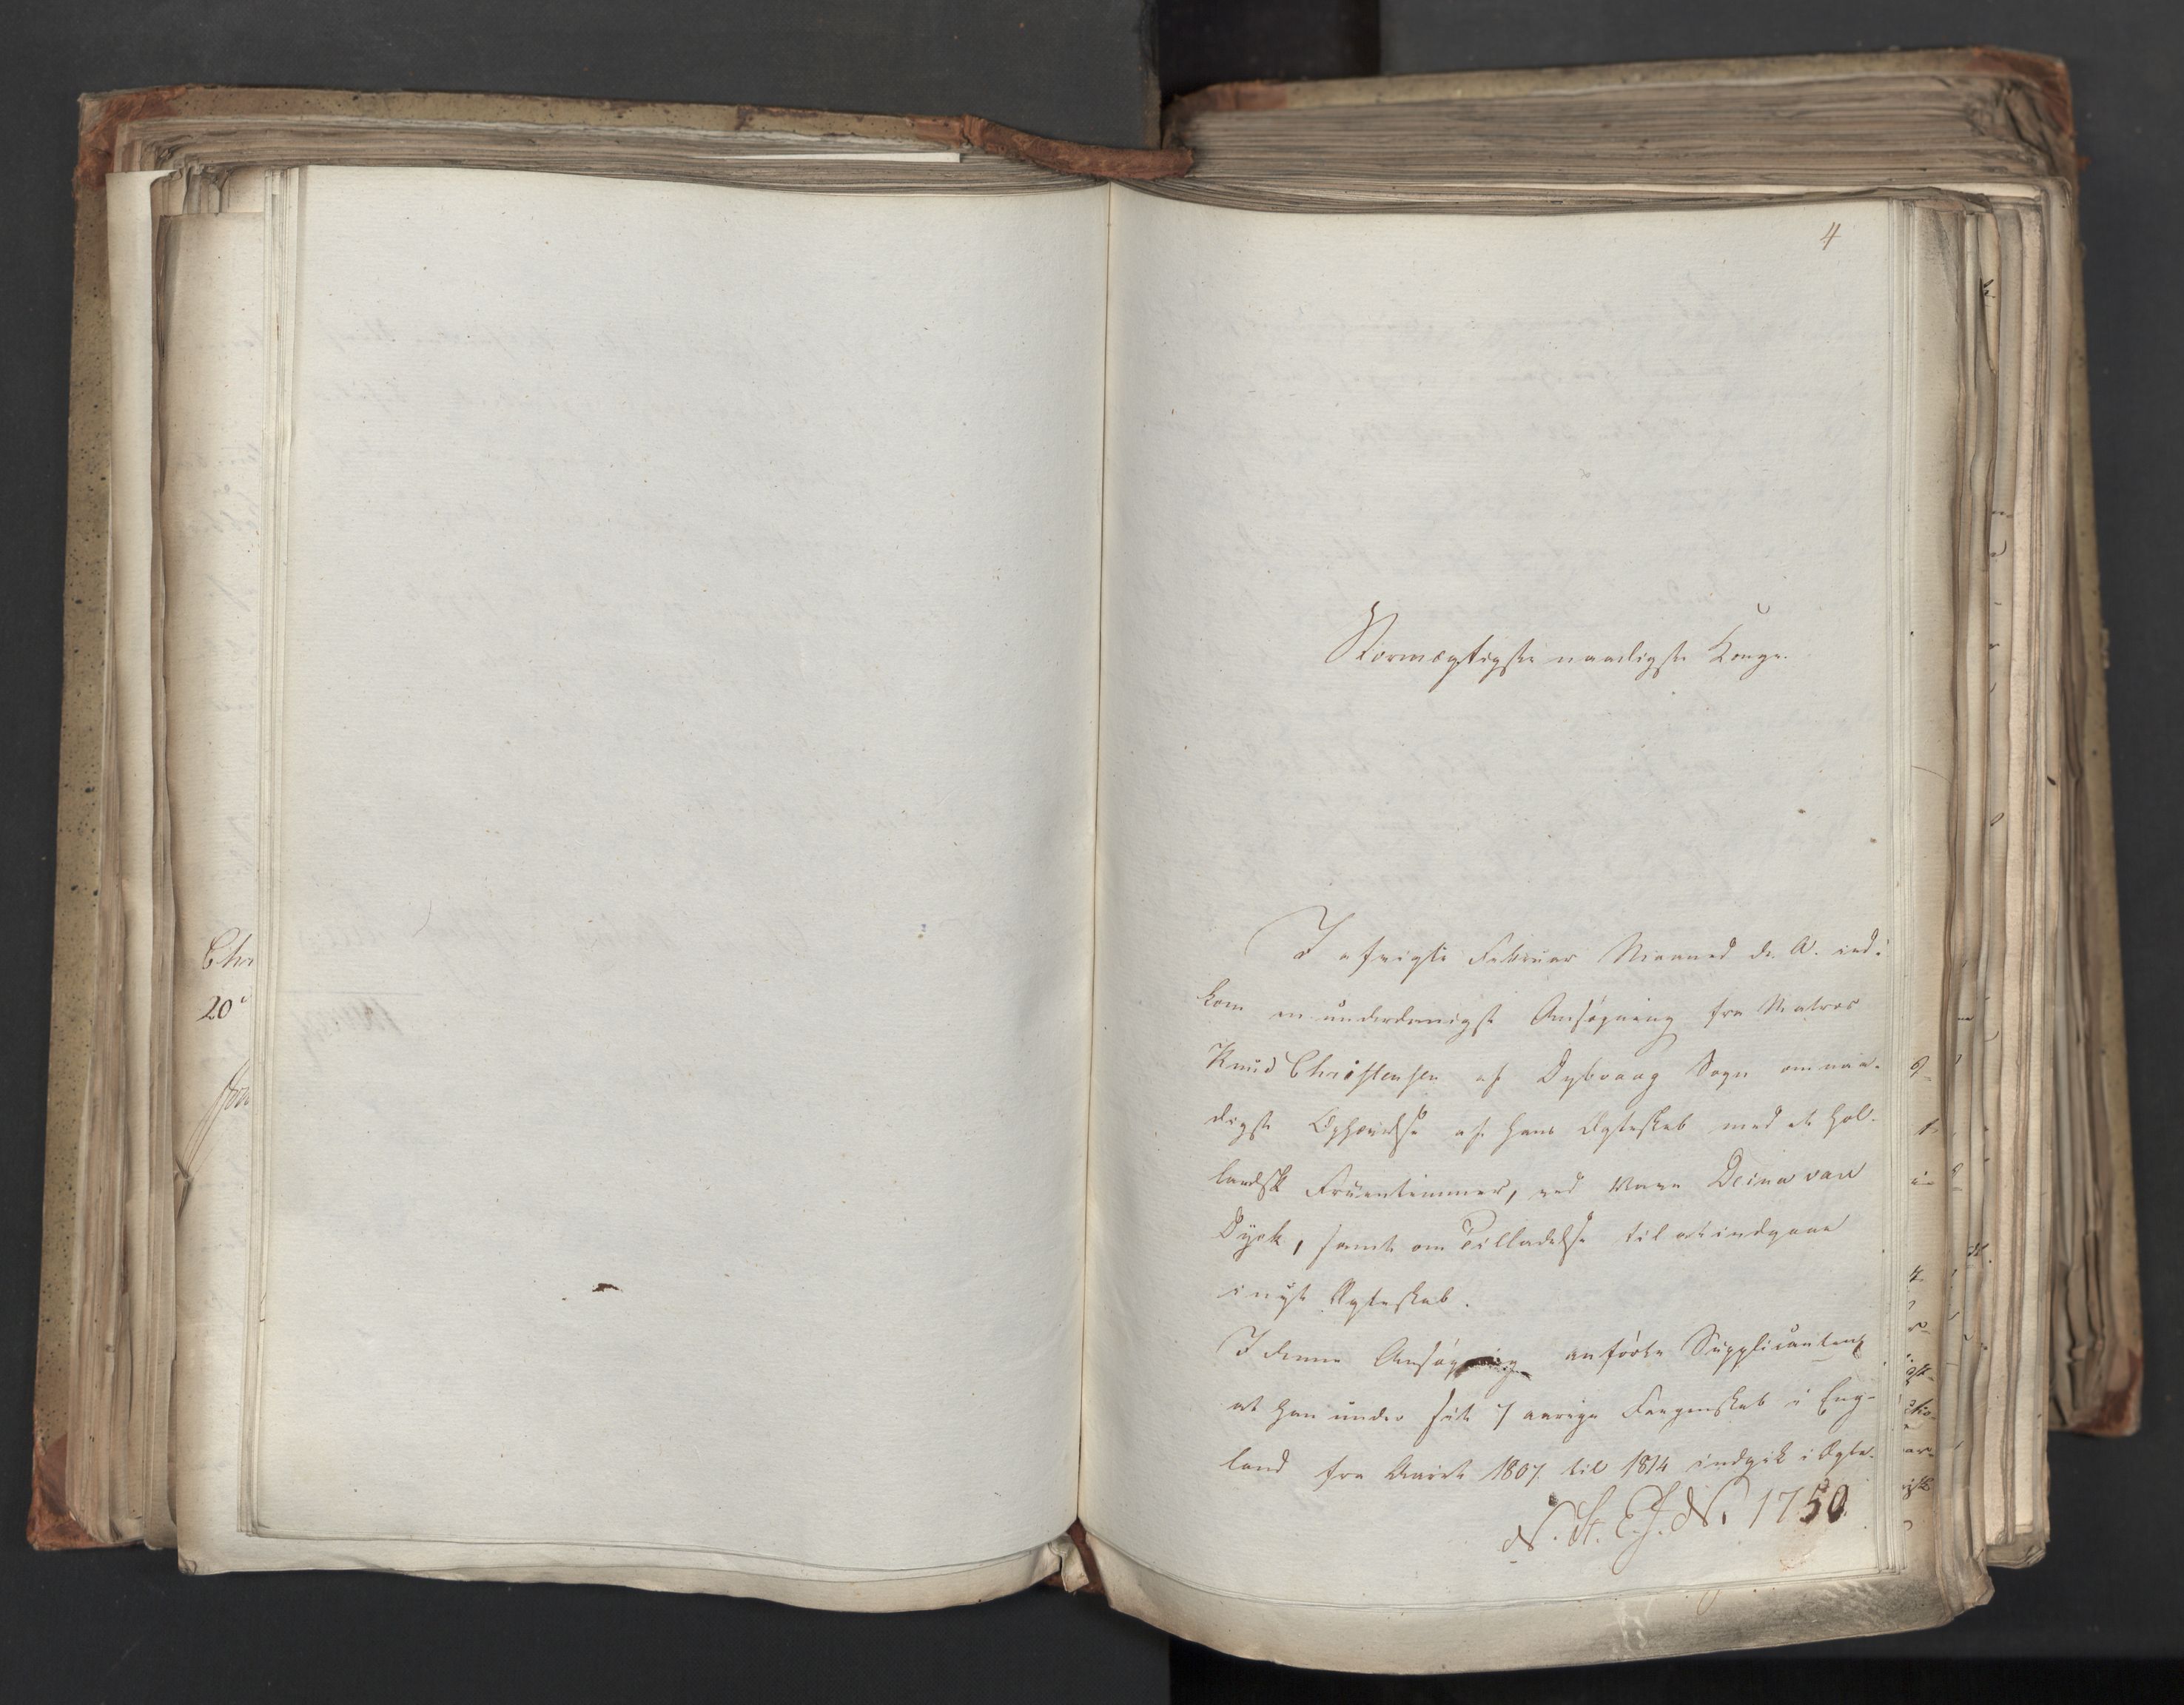 Chr
20
4
Stormægtigste naadigste Konge.
I afvigte Februar Maaned d. A. ind:
kom en underdanigst Ansøgning fra Matros
Knud Christensen af Dybvaag Sogn om naa-
digst Ophævelse af hans Ægteskab med et hol-
landsk Fruentimmer, ved Navn Deina van
Dyck, samt om Tilladelse til at indgaae
i nyt Ægteskab.
I denne Ansøgning anførte Supplicanten,
at han under sit 7 aarige Fangenskab i Eng-
land fra Aaret 1807 til 1814 indgik i Ægte-
N. St. E. J. N. 1750